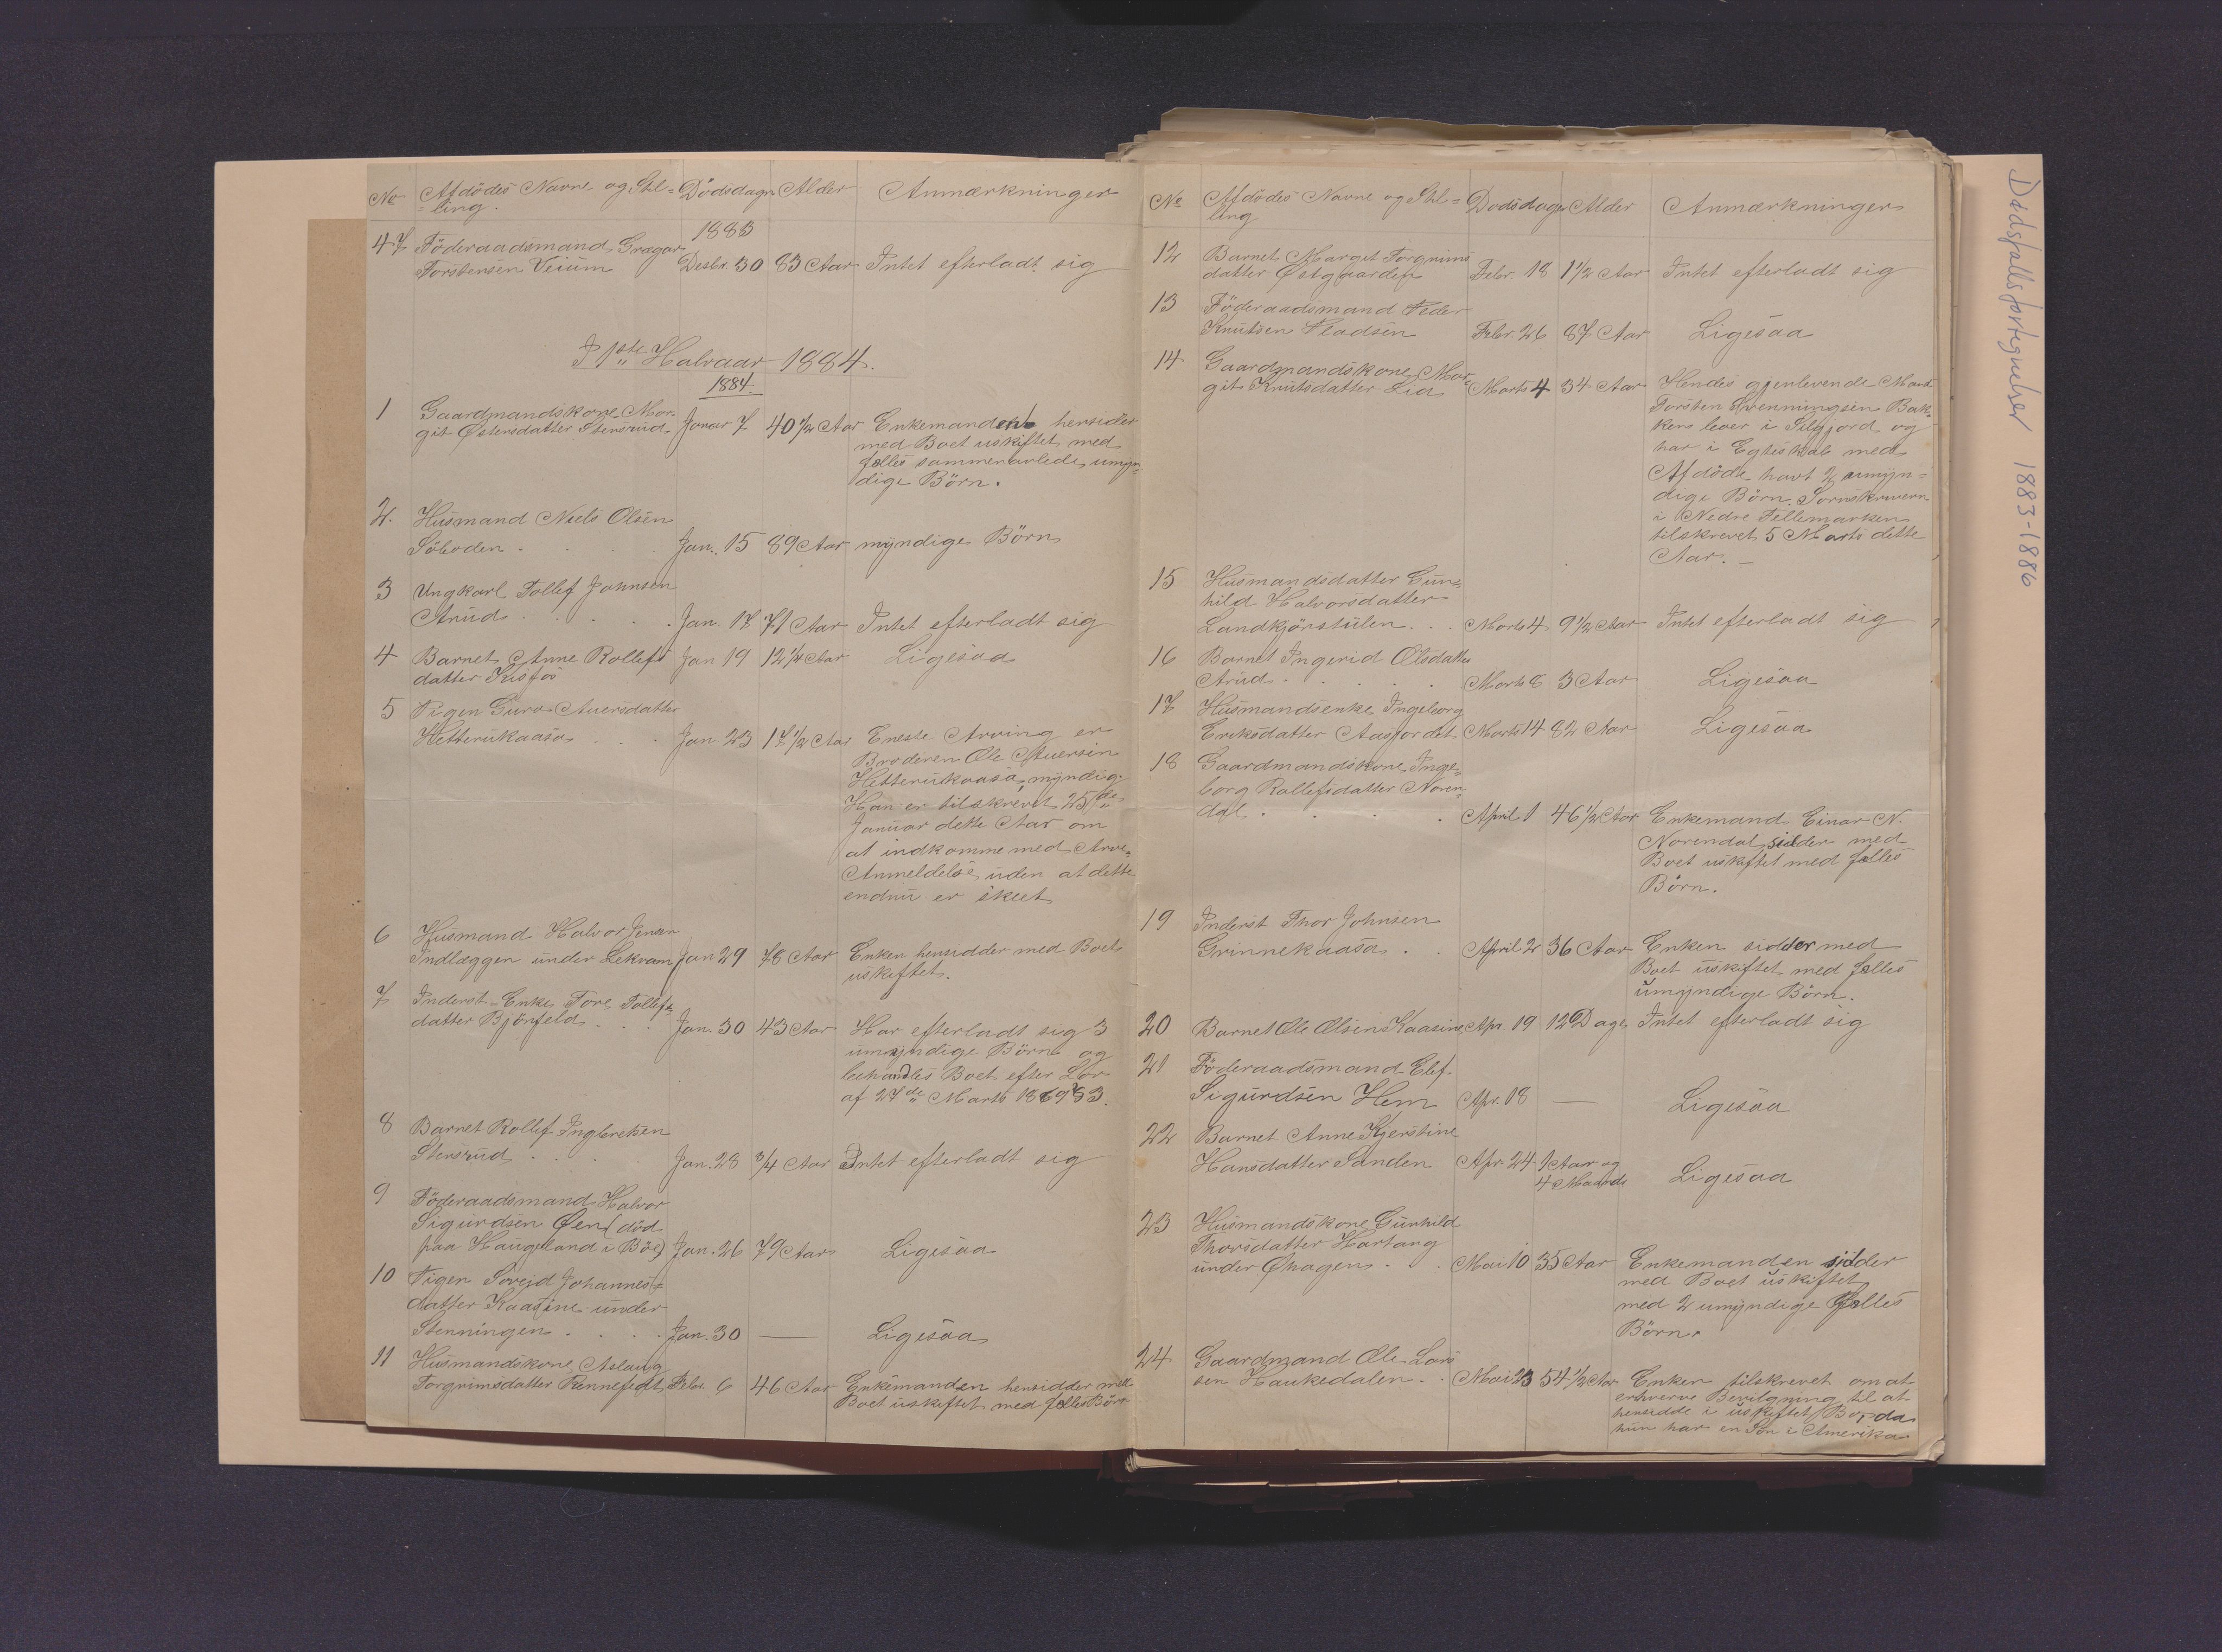 No Afdödes Navne og Stil= Dödsdage Alder Anmærkninger
=ling.
1883
47 Föderaadsmand Gregar
Torstensen Veium Desbr. 30 83 Aar Intet efterladt sig
I 1ste Halvaar 1884.
1884.
1 Gaardmandskone Mar-
git Østensdatter Stensrud Januar 7 40 1/2 Aar Enkemanden hensidder
med Boet uskiftet med
fælles sammenavlede umyn=
dige Börn.
2. Husmand Niels Olsen
Söboden . . . Jan. 15 89 Aar myndige Börn
3 Ungkarl Tollef Johnsen
Arud . . . . . Jan. 17 71 Aar Intet efterladt sig
4 Barnet Anne Rollefs Jan 19 12 1/4 Aar Ligesaa
datter Kisfos
5 Pigen Guro Auversdatter
Hetterukaasa . . . Jan 23 17 1/2 Aar Eneste Arving er
Broderen Ole Auversen
Hetterukaasa, myndig.
Han er tilskrevet 25de
Januar dette Aar om
at indkomme med Arve=
Anmeldelse uden at dette
endnu er skeet
6 Husmand Halvor Jensen
Indlæggen under Lekvam Jan 29 78 Aar Enken hensidder med Boet
uskiftet.
7 Inderst-Enke Tore Tollefs
datter Björnfeld . . . Jan. 30 43 Aar Har efterladt sig 3
umyndige Börn og
behandles Boet efter Lov
af 27de Marts 1869 § 3.
8 Barnet Rollef Ingbretsen
Stensrud . . . . Jan. 28 3/4 Aar Intet efterladt sig
9 Föderaadsmand Halvor
Sigurdsen Øen (död
paa Haugeland i Böe) Jan. 26 79 Aar Ligesaa
10 Pigen Sövejd Johannes=
datter Kaasine under
Stenningen . . . . Jan. 30 — Ligesaa
11 Husmandskone Aslaug
Torgrimsdatter Rennefedt Febr. 6 46 Aar Enkemanden hensidder med
Boet uskiftet med fælles Börn
No Afdödes Navne og Stil= Dodsdage Alder Anmærkninger
ling
12 Barnet Margit Torgrims
datter Østgaarden Febr. 18 1 1/2 Aar Intet efterladt sig
13 Föderaadsmand Peder
Knutsen Pladsen Febr. 26 87 Aar Ligesaa
14 Gaardmandskone Mar=
git Knutsdatter Lia Marts 4 34 Aar Hendes gjenlevende Mand
Torsten Svenningsen Bak-
ken lever i Silgjord og
har i Egteskab med
Afdöde havt 2 umyn=
dige Börn. Sorenskriveren
i Nedre Tellemarken
tilskrevet 5 Marts dette
Aar. —
15 Husmandsdatter Gun=
hild Halvorsdatter
Landkjönstulen . . . Marts 4 9 1/2 Aar Intet efterladt sig
16 Barnet Ingerid Olsdatter
Arud . . . . . Marts 8 3 Aar Ligesaa
17 Husmandsenke Ingeborg
Eriksdatter Aasjordet Marts 14 82 Aar Ligesaa
18 Gaardmandskone Inge=
borg Rollefsdatter Noren=
dal . . . . . April 1 46 1/2 Aar Enkemand Einar N.
Norendal sidder med
Boet uskiftet med fælles
Börn.
19 Inderst Thor Johnsen
Grinnekaasa . . . April 2 36 Aar Enken sidder med
Boet uskiftet med fælles
umyndige Börn.
20 Barnet Ole Olsens Kaasine Apr. 19 12 Dage Intet efterladt sig
21 Föderaadsmand Elef
Sigurdsen Hem Apr. 18 — Ligesaa
22 Barnet Anne Kjerstine
Hansdatter Sanden Apr 24 1 Aar og
4 Maaneder Ligesaa
23 Husmandskone Gunhild
Thorsdatter Hartaug
under Ødagen . . Mai 10 35 Aar Enkemanden sidder
med Boet uskiftet
med 2 umyndige fælles
Börn.
24 Gaardmand Ole Lars
sen Haukedalen . . Mai 23 54 1/2 Aar Enken tilskrevet om at
erhverve Bevilgning til at
hensidde i uskiftet Bo, da
hun har en Sön i Amerika
Dødsfallsfortegnelser 1883-1886